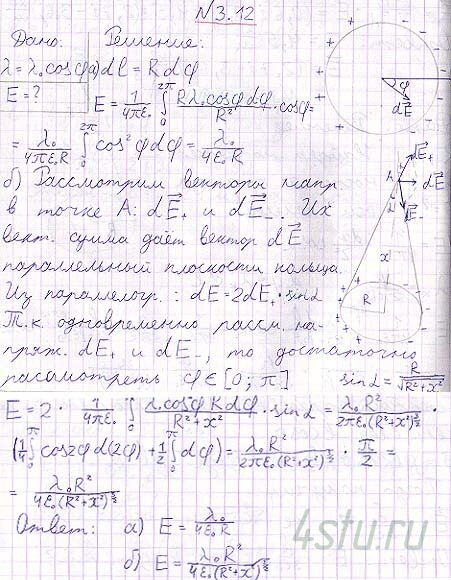 N 3.12
Дано: Решение:
λ = λ₀cosφ а) dl = R dφ
E = ? E = 1/4πε₀ ∫₀^2π Rλ₀cosφ dφ/R² · cosφ =
= λ₀/4πε₀R ∫₀^2π cos²φ dφ = λ₀/4ε₀R
φ
dE⃗
б) Рассмотрим векторы напр
в точке A: dE⃗₊ и dE⃗₋. Их
вект. сумма даёт вектор dE⃗
параллельный плоскости кольца.
Из параллелогр.: dE = 2dE₊ · sinα
Т.к. одновременно рассм. на-
пряж. dE₊ и dE₋, то достаточно
рассмотреть φ∈[0; π]
dE⃗₊
A
dE⃗
E⃗₋
α
x
R
sinα = R/√(R²+x²)
E = 2 · 1/4πε₀ ∫₀^π λ₀cos²φ R dφ/R²+x² · sinα = λ₀R²/2πε₀(R²+x²)^3/2 ·
(1/4 ∫₀^π cos2φ d(2φ) + 1/2 ∫₀^π dφ) = λ₀R²/2πε₀(R²+x²)^3/2 · π/2 =
= λ₀R²/4ε₀(R²+x²)^3/2
Ответ: а) E = λ₀/4ε₀R
б) E = λ₀R²/4ε₀(R²+x²)^3/2
4stu.ru